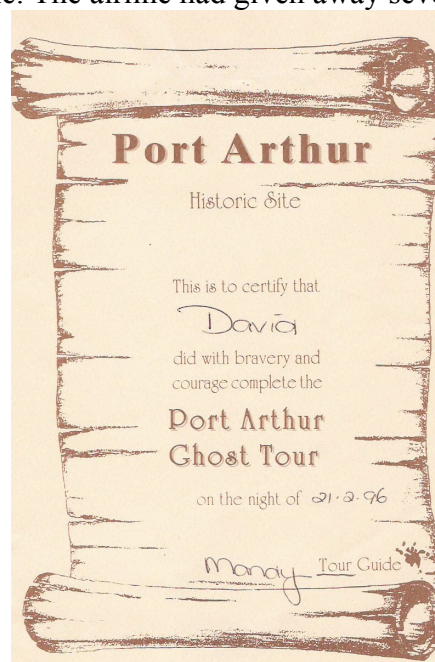 The airline had given away
Port Arthur
Historic Site
This is to certify that
David
did with bravery and
courage complete the
Port Arthur
Ghost Tour
on the night of 21.2.96
Mandy Tour Guide